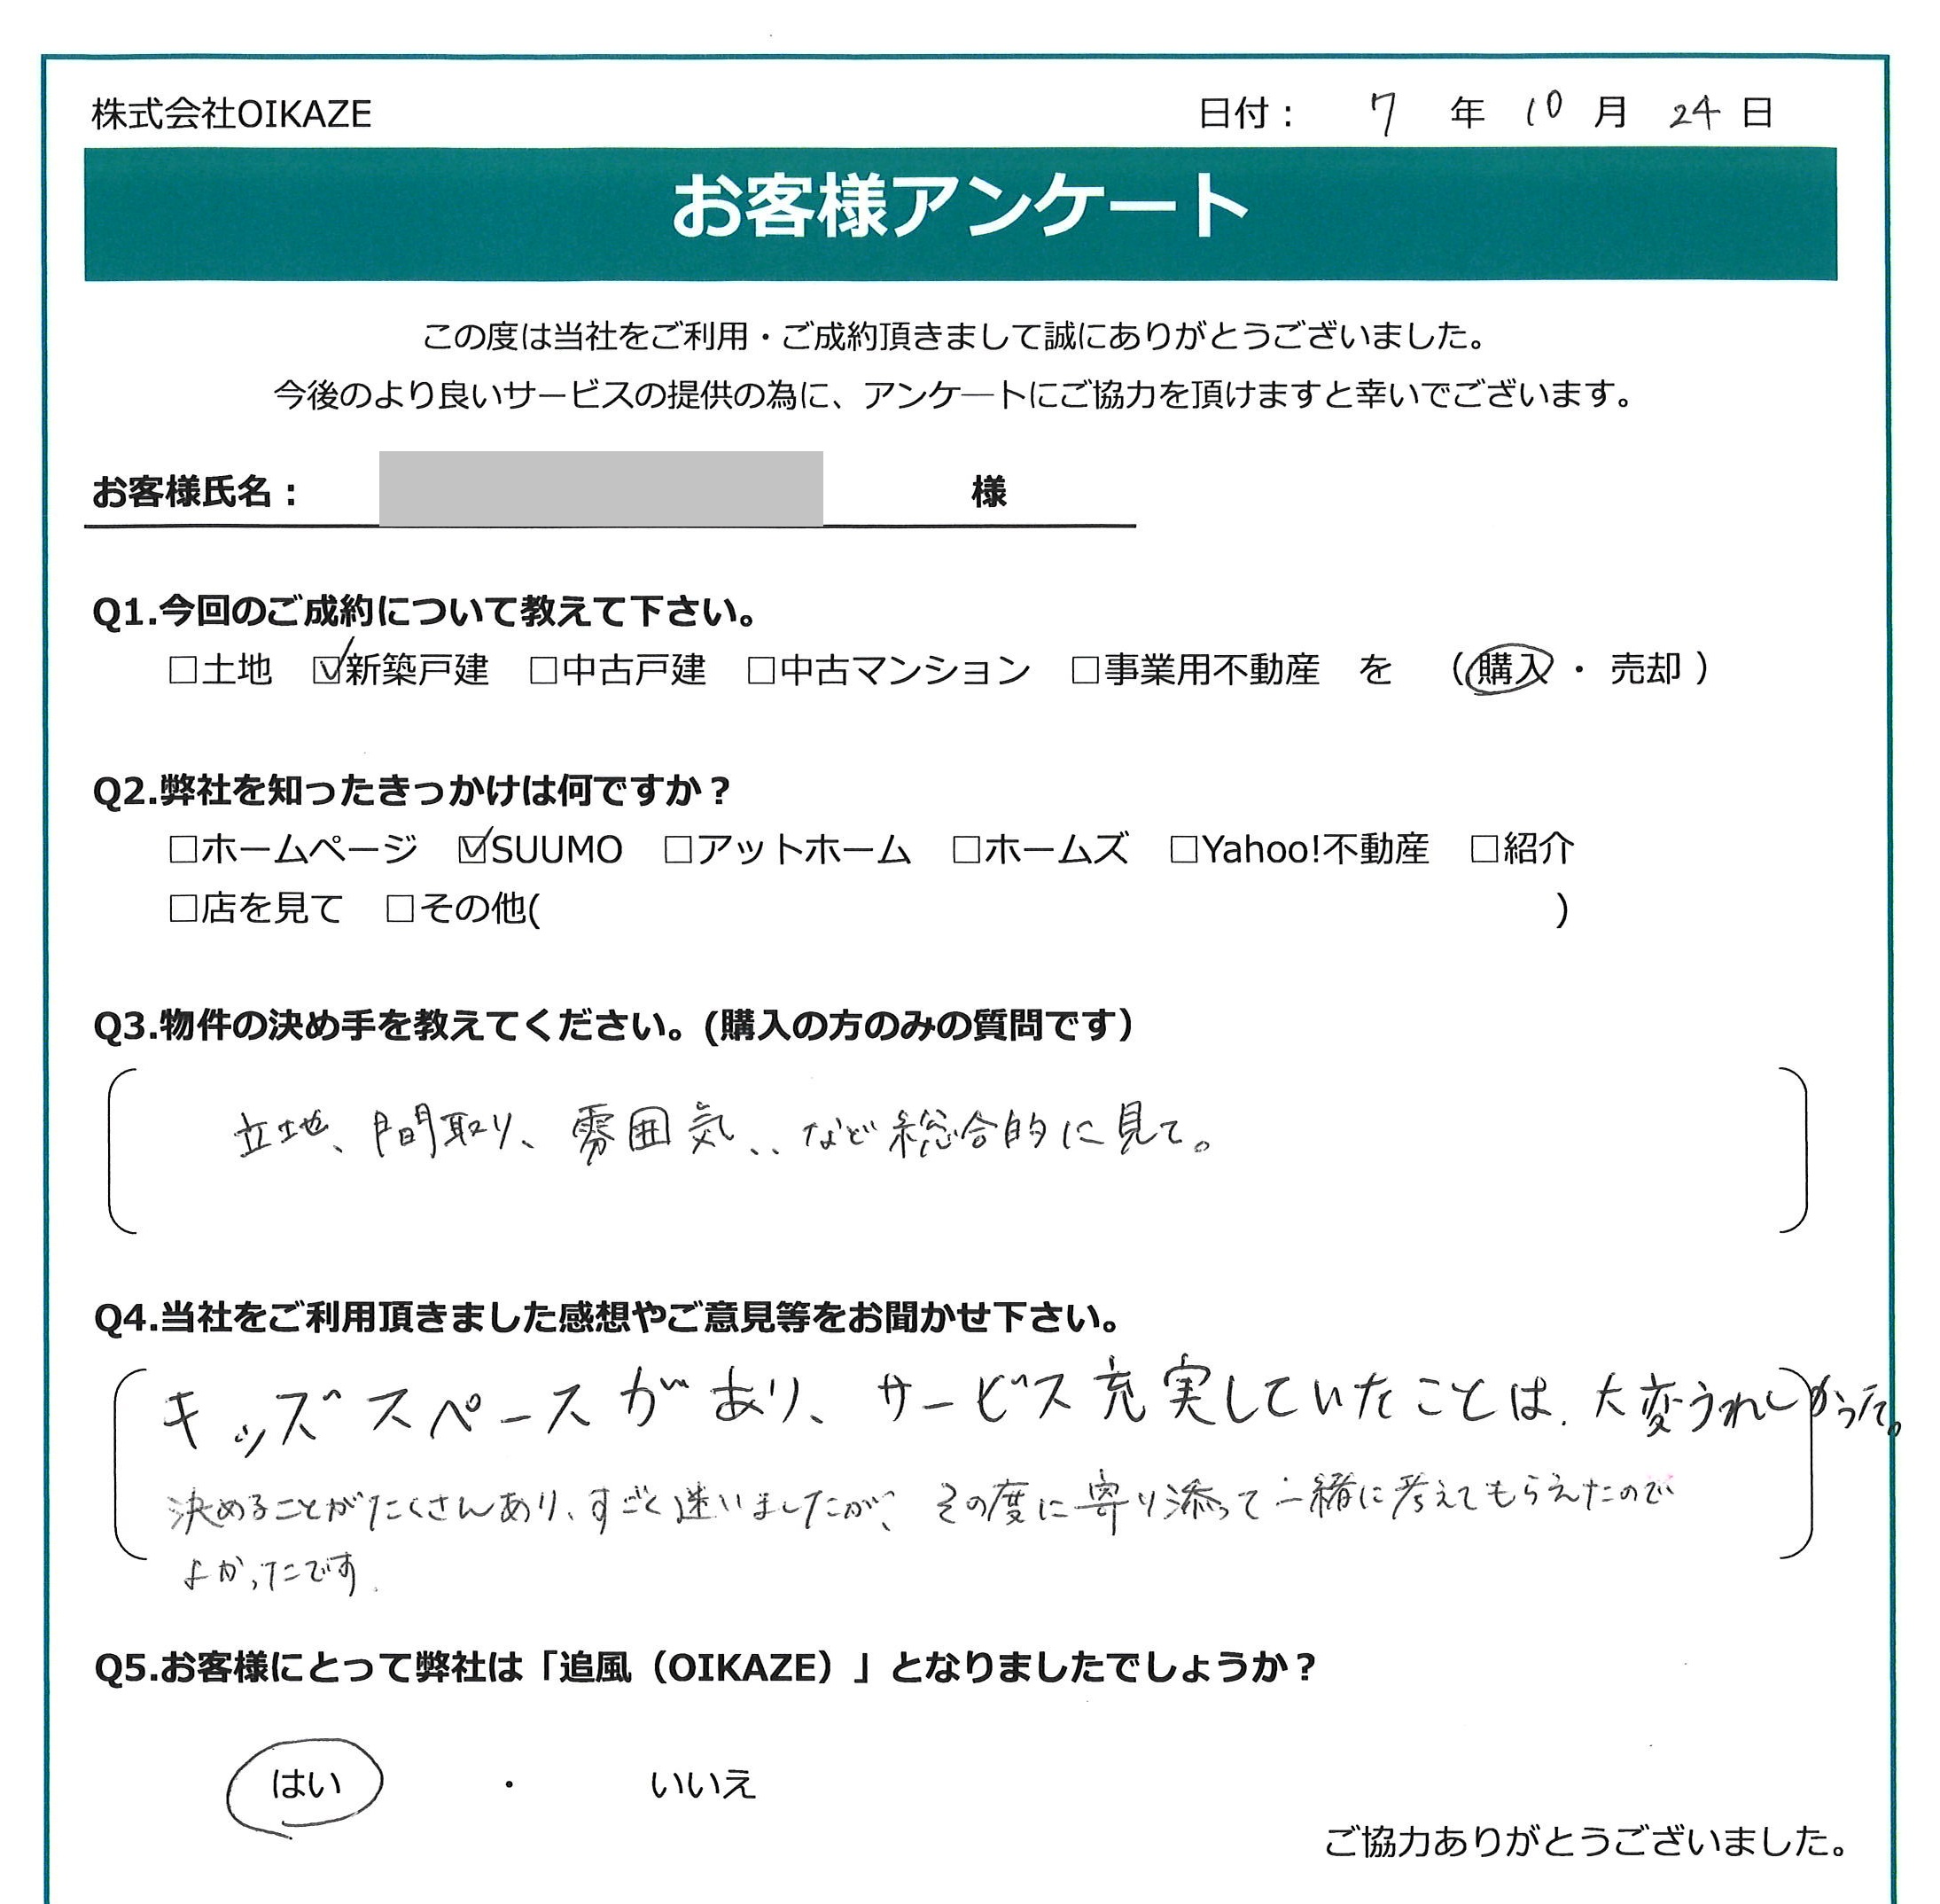 株式会社OIKAZE 日付： 7 年 10 月 24 日
お客様アンケート
この度は当社をご利用・ご成約頂きまして誠にありがとうございました。
今後のより良いサービスの提供の為に、アンケートにご協力を頂けますと幸いでございます。
お客様氏名： 様
Q1.今回のご成約について教えて下さい。
□土地 ☑新築戸建 □中古戸建 □中古マンション □事業用不動産 を （ 購入 ・ 売却 ）
Q2.弊社を知ったきっかけは何ですか？
□ホームページ ☑SUUMO □アットホーム □ホームズ □Yahoo!不動産 □紹介
□店を見て □その他( )
Q3.物件の決め手を教えてください。(購入の方のみの質問です）
立地、間取り、雰囲気、、など総合的に見て。
Q4.当社をご利用頂きました感想やご意見等をお聞かせ下さい。
キッズスペースがあり、サービス充実していたことは、大変うれしかった。
決めることがたくさんあり、すごく迷いましたが、その度に寄り添って一緒に考えてもらえたので
よかったです.
Q5.お客様にとって弊社は「追風（OIKAZE）」となりましたでしょうか？
はい ・ いいえ
ご協力ありがとうございました。